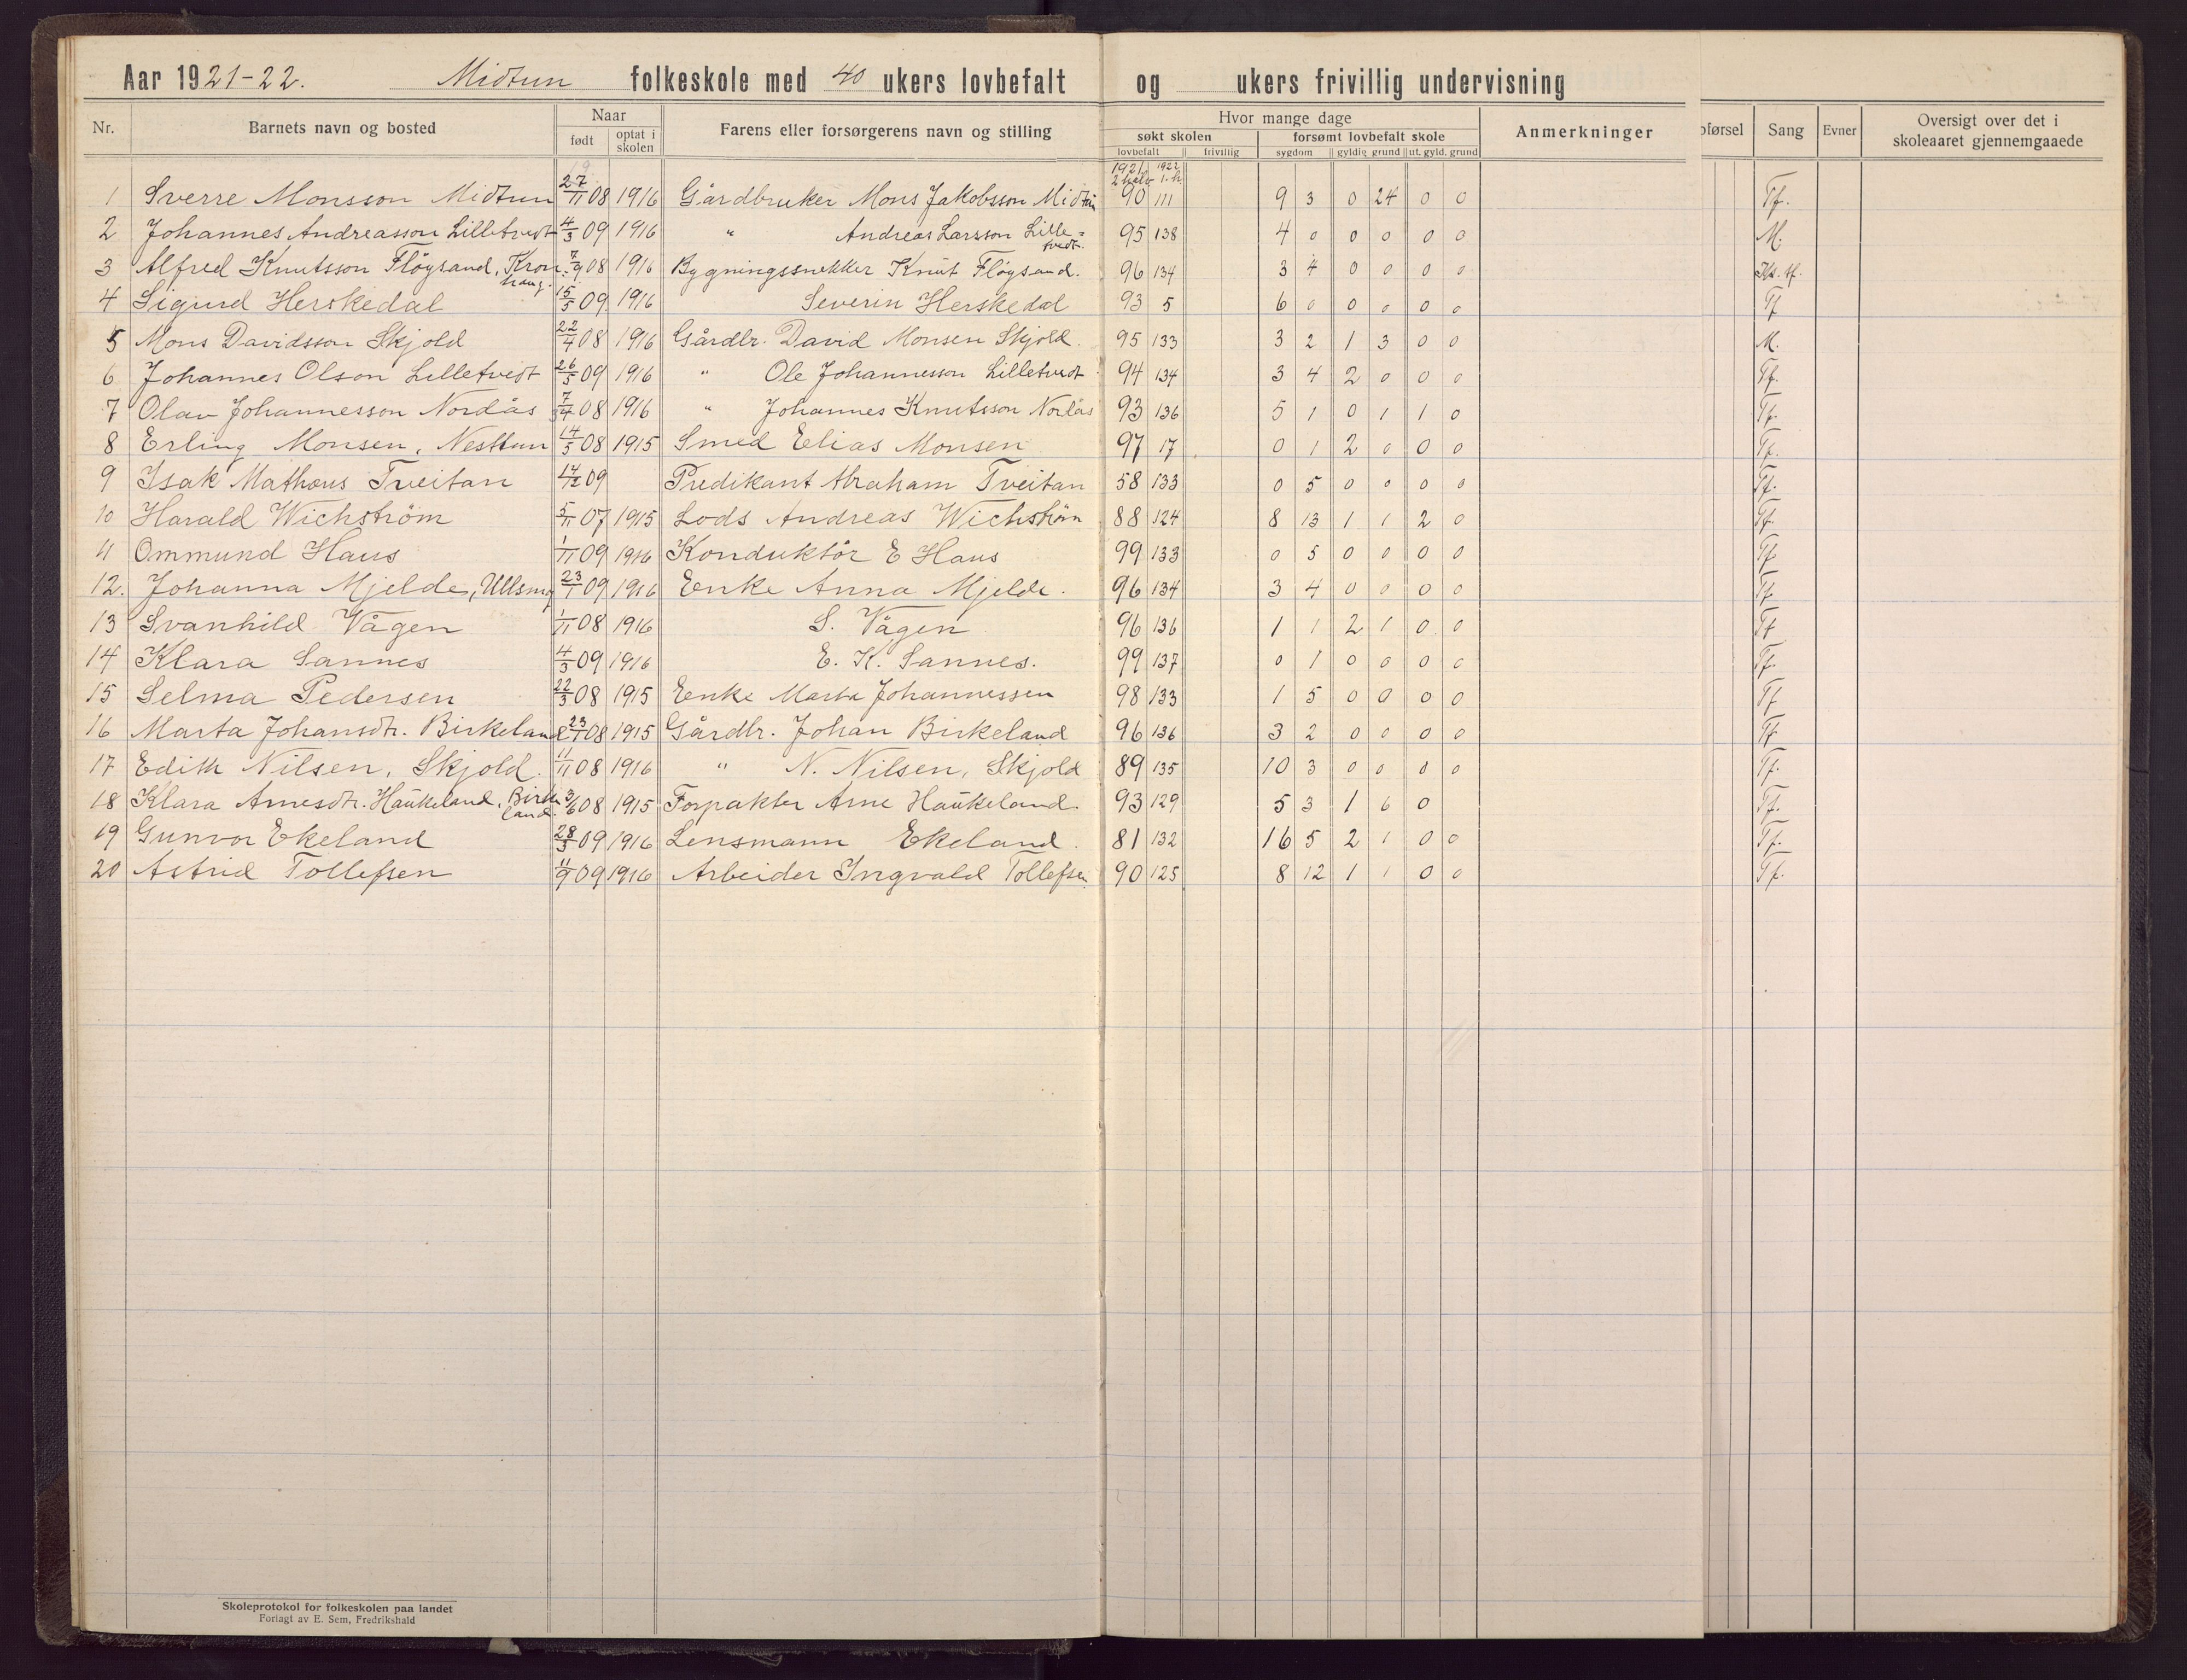 Aar 1921-22. Midtun folkeskole med 40 ukers lovbefalt og ukers frivillig undervisning
Nr. Barnets navn og bosted Naar født optat i skolen Farens eller forsørgerens navn og stilling Hvor mange dage søkt skolen lovbefalt frivillig forsømt lovbefalt skole sygdom gyldig grund ut. gyld. grund Anmerkninger oførsel Sang Evner Oversigt over det i skoleaaret gjennemgaaede
19 1921 2 halv 1922 1. h
1 Sverre Monsson Midtun 27/11 08 1916 Gårdbruker Mons Jakobsson Midtun 90 111 9 3 0 24 0 0 Tf.
2 Johannes Andreasson Lilletvedt 4/3 09 1916 " Andreas Larsson Lilletvedt. 95 138 4 0 0 0 0 0 M.
3 Alfred Knutsson Fløysand, Kronhaug. 7/9 08 1916 Bygningssnekker Knut Fløysand. 96 134 3 4 0 0 0 0
4 Sigurd Herskedal 15/5 09 1916 Severin Herskedal 93 5 6 0 0 0 0 0 Tf
5 Mons Davidsson Skjold 22/4 08 1916 Gårdbr. David Monsen Skjold. 95 133 3 2 1 3 0 0 M.
6 Johannes Olson Lilletvedt 26/5 09 1916 " Ole Johannesson Lilletvedt 94 134 3 4 2 0 0 0 Tf.
7 Olav Johannesson Nordås 7/4 08 1916 " Johannes Knutsson Nordås 93 136 5 1 0 1 1 0 Tf.
8 Erling Monsen, Nesttun 14/5 08 1915 Smed Elias Monsen 97 17 0 1 2 0 0 0 Tf.
9 Isak Mathæus Tveitan 09 Predikant Abraham Tveitan 58 133 0 5 0 0 0 0 Tf.
10 Harald Wichström 5/11 07 1915 Lods Andreas Wichström 88 124 8 13 1 1 2 0 Tf.
11 Ommund Haus 1/11 09 1916 Konduktör E Haus 99 133 0 5 0 0 0 0 Tf.
12. Johanna Mjelde, Ullsmg 23/1 09 1916 Enke Anna Mjelde. 96 134 3 4 0 0 0 0 Tf
13 Svanhild Vågen 1/11 08 1916 S. Vågen 96 136 1 1 2 1 0 0 Tf
14 Klara Sannes 4/3 09 1916 E. K. Sannes. 99 137 0 1 0 0 0 0 Tf.
15 Selma Pedersen 22/3 08 1915 Enke Marta Johannessen 98 133 1 5 0 0 0 0 Tf
16 Marta Johansdtr. Birkeland 23/1 08 1915 Gårdbr. Johan Birkeland 96 136 3 2 0 0 0 0 Tf
17 Edith Nilsen, Skjold. 11/11 08 1916 " N. Nilsen, Skjold 89 135 10 3 0 0 0 0 Tf.
18 Klara Arnesdtr. Haukeland, Birkeland. 3/6 08 1915 Forpakter Arne Haukeland. 93 129 5 3 1 6 0 Tf.
19 Gunvor Ekeland 28/3 09 1916 Lensmann Ekeland. 81 132 16 5 2 1 0 0 Tf.
20 Astrid Tollefsen 11/9 09 1916 Arbeider Ingvald Tollefsen 90 125 8 12 1 1 0 0 Tf.
Skoleprotokol for folkeskolen paa landet
Forlagt av E. Sem, Fredrikshald